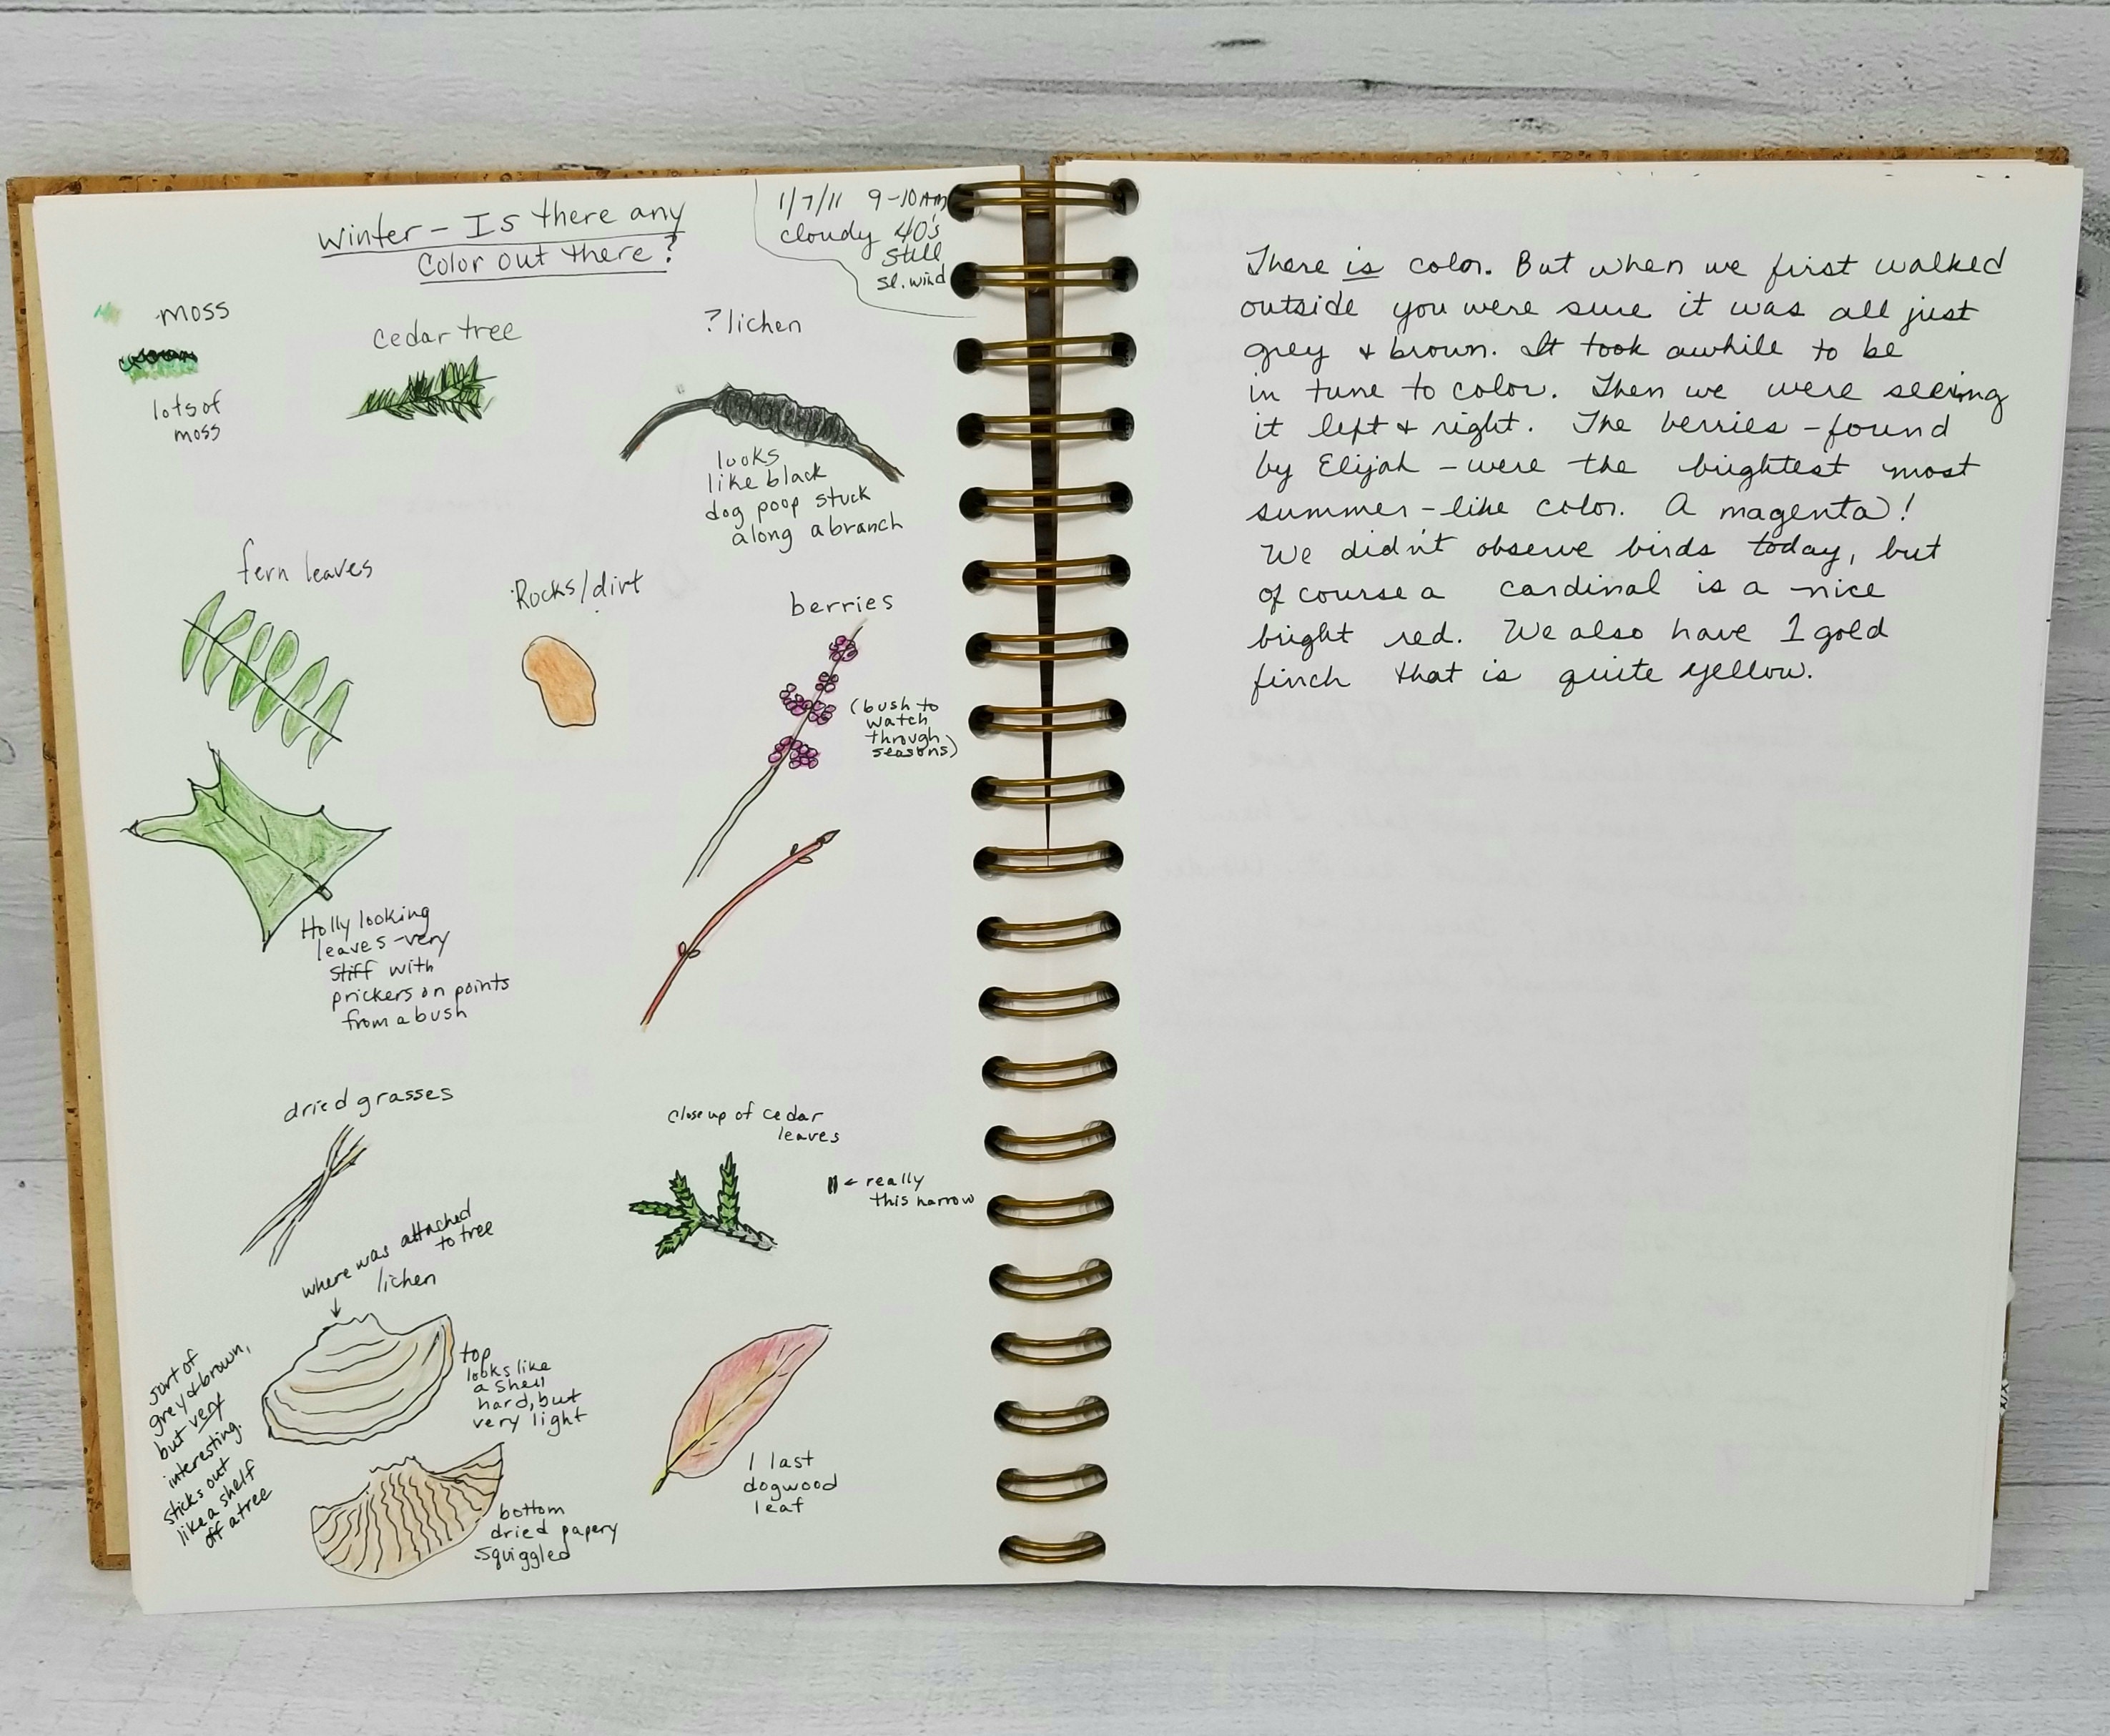 Winter - Is there any
Color out there?
1/7/11 9-10AM
cloudy 40's
still
sl. wind
moss
lots of
moss
cedar tree
? lichen
looks
like black
dog poop stuck
along a branch
fern leaves
Rocks/dirt
berries
(bush to
watch
through
seasons)
Holly looking
leaves - very
stiff with
prickers on points
from a bush
dried grasses
close up of cedar
leaves
← really
this narrow
where was attached
to tree
lichen
sort of
grey & brown,
but very
interesting.
sticks out
like a shelf
off a tree
top
looks like
a shell
hard, but
very light
bottom
dried papery
squiggled
1 last
dogwood
leaf
There is color. But when we first walked
outside you were sure it was all just
grey & brown. It took awhile to be
in tune to color. Then we were seeing
it left & right. The berries - found
by Elijah - were the brightest most
summer-like color. A magenta!
We didn't observe birds today, but
of course a cardinal is a nice
bright red. We also have 1 gold
finch that is quite yellow.